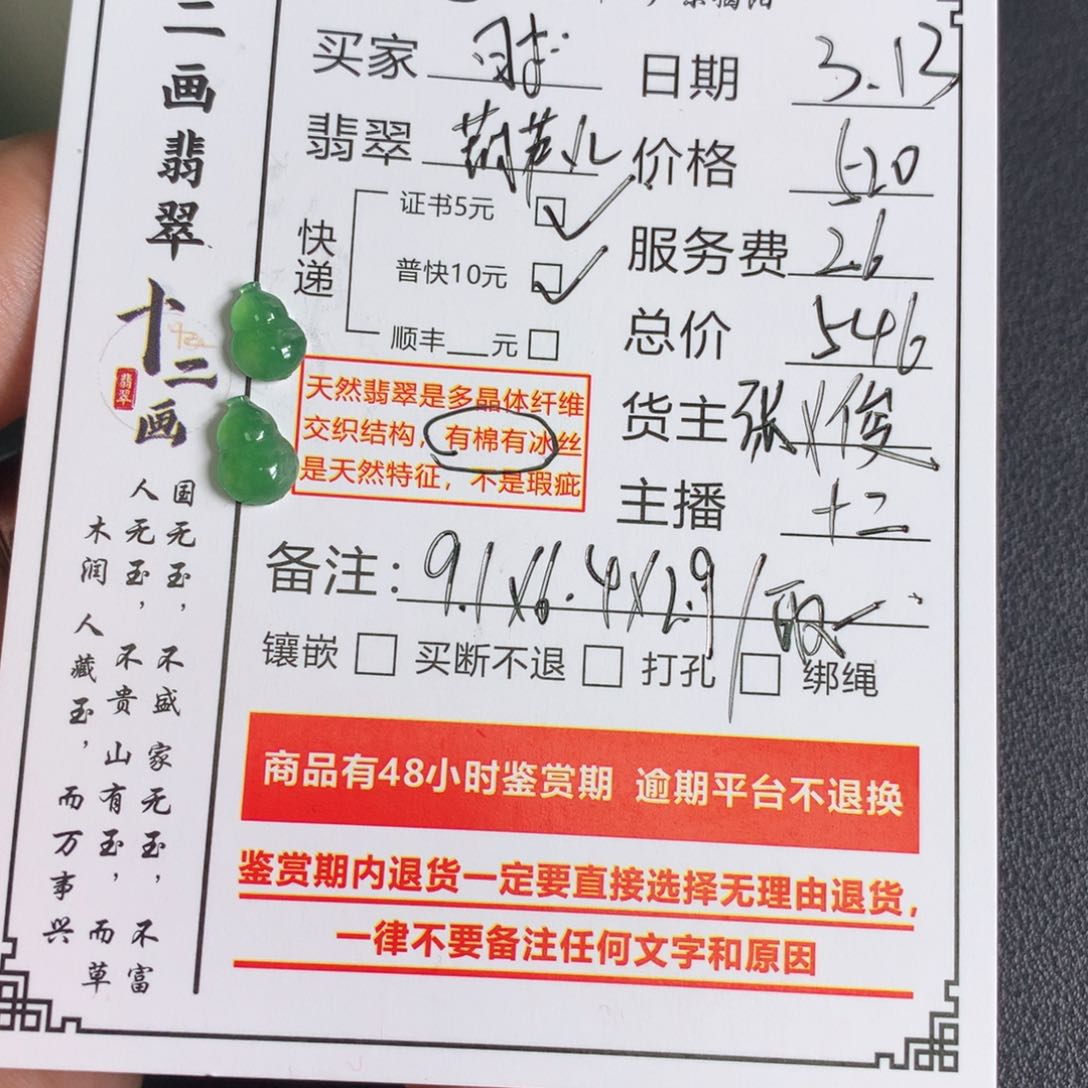 二画翡翠
十二画
翡翠
国无玉，不盛家无玉，不富
人无玉，不贵山有玉，而草
木润人藏玉，而万事兴
买家
日期 3.13
翡翠 葫芦儿
价格 520
快递
证书5元 ☑
普快10元 ☑
顺丰__元 □
服务费 26
总价 546
货主 张X俊
主播 十二
天然翡翠是多晶体纤维
交织结构，有棉有冰丝
是天然特征，不是瑕疵
备注：9.1X6.4X2.9/
镶嵌 □ 买断不退 □ 打孔 □ 绑绳
商品有48小时鉴赏期 逾期平台不退换
鉴赏期内退货一定要直接选择无理由退货，
一律不要备注任何文字和原因